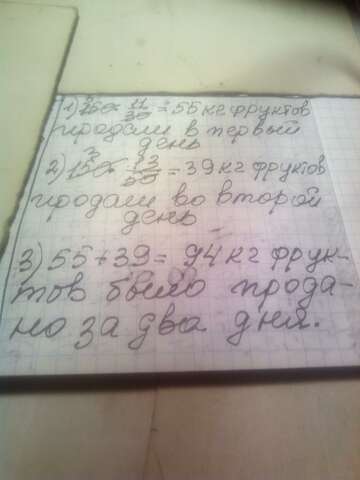 1) 150 · 11/30 = 55 кг фруктов
продали в первый
день
2) 150 · 13/50 = 39 кг фруктов
продали во второй
день
3) 55 + 39 = 94 кг фрук-
тов было прода-
но за два дня.